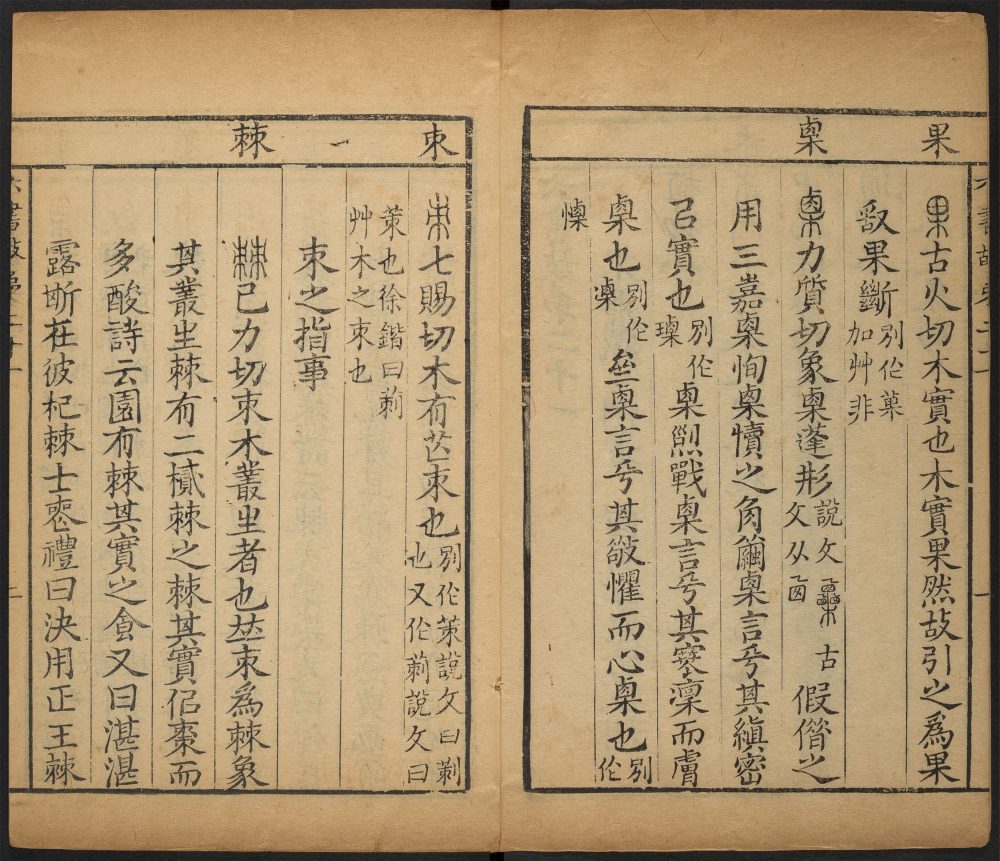 果
㮚
古火切木實也木實果然故引之為果
敢果斷别作菓
加艸非
力質切象㮚蓬形說文古
文从㔽假借之
用三嘉㮚恂㮚㥽之角繭㮚言乎其縝密
㠯實也别作
瑮㮚𠛱戰㮚言乎其寒凜而膚
㮚也别作
凓㮚言乎其敬懼而心㮚也别作
慄
朿
一
棘
七賜切木有芒朿也别作茦說文曰刺
也又作莿說文曰
茦也徐鍇曰莿
艸木之朿也
朿之指事
己力切朿木叢生者也𠀤朿為棘象
其叢生棘有二樲棘之棘其實佀棗而
多酸詩云園有棘其實之食又曰湛湛
露斯在彼杞棘士喪禮曰決用正王棘